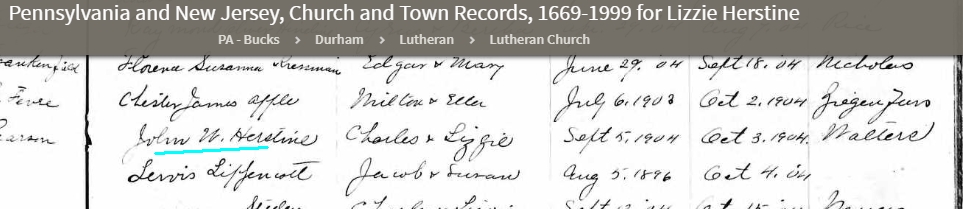 Pennsylvania and New Jersey, Church and Town Records, 1669-1999 for Lizzie Herstine
PA - Bucks > Durham > Lutheran > Lutheran Church
Florence Susanna Edgar & Mary June 29. 04 Sept 18. 04 Nicholas
Chester James Apple Milton & Ella July 6. 1903 Oct 2. 1904
John W. Herstine Charles & Lizzie Sept 5. 1904 Oct 3. 1904. Walters
Lewis Lippencott Jacob & Susan Aug 5. 1896 Oct 4. 04